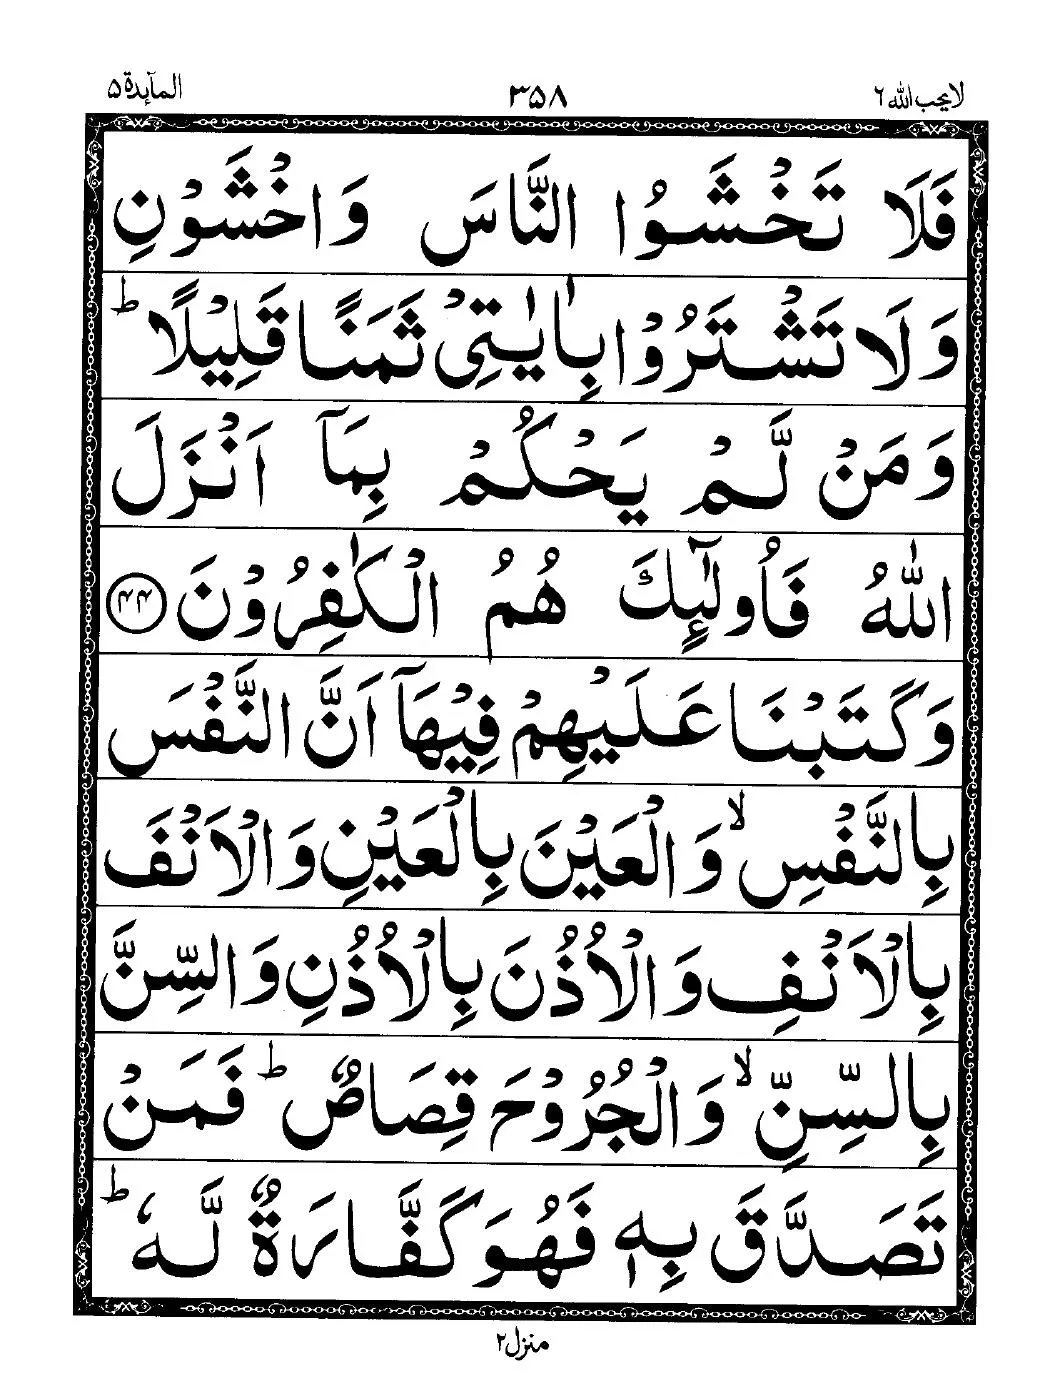 لا یحب الله ۶ ۳۵۸ المآىِٕدة ۵
فَلَا تَخْشَوُا النَّاسَ وَاخْشَوْنِ
وَلَا تَشْتَرُوْا بِاٰيٰتِيْ ثَمَنًا قَلِيْلًا ؕ
وَمَنْ لَّمْ يَحْكُمْ بِمَاۤ اَنْزَلَ
اللّٰهُ فَاُولٰٓىِٕكَ هُمُ الْكٰفِرُوْنَ ۴۴
وَكَتَبْنَا عَلَيْهِمْ فِيْهَاۤ اَنَّ النَّفْسَ
بِالنَّفْسِ ۙ وَالْعَيْنَ بِالْعَيْنِ وَالْاَنْفَ
بِالْاَنْفِ وَالْاُذُنَ بِالْاُذُنِ وَالسِّنَّ
بِالسِّنِّ ۙ وَالْجُرُوْحَ قِصَاصٌ ؕ فَمَنْ
تَصَدَّقَ بِهٖ فَهُوَ كَفَّارَةٌ لَّهٗ ؕ
منزل ۲